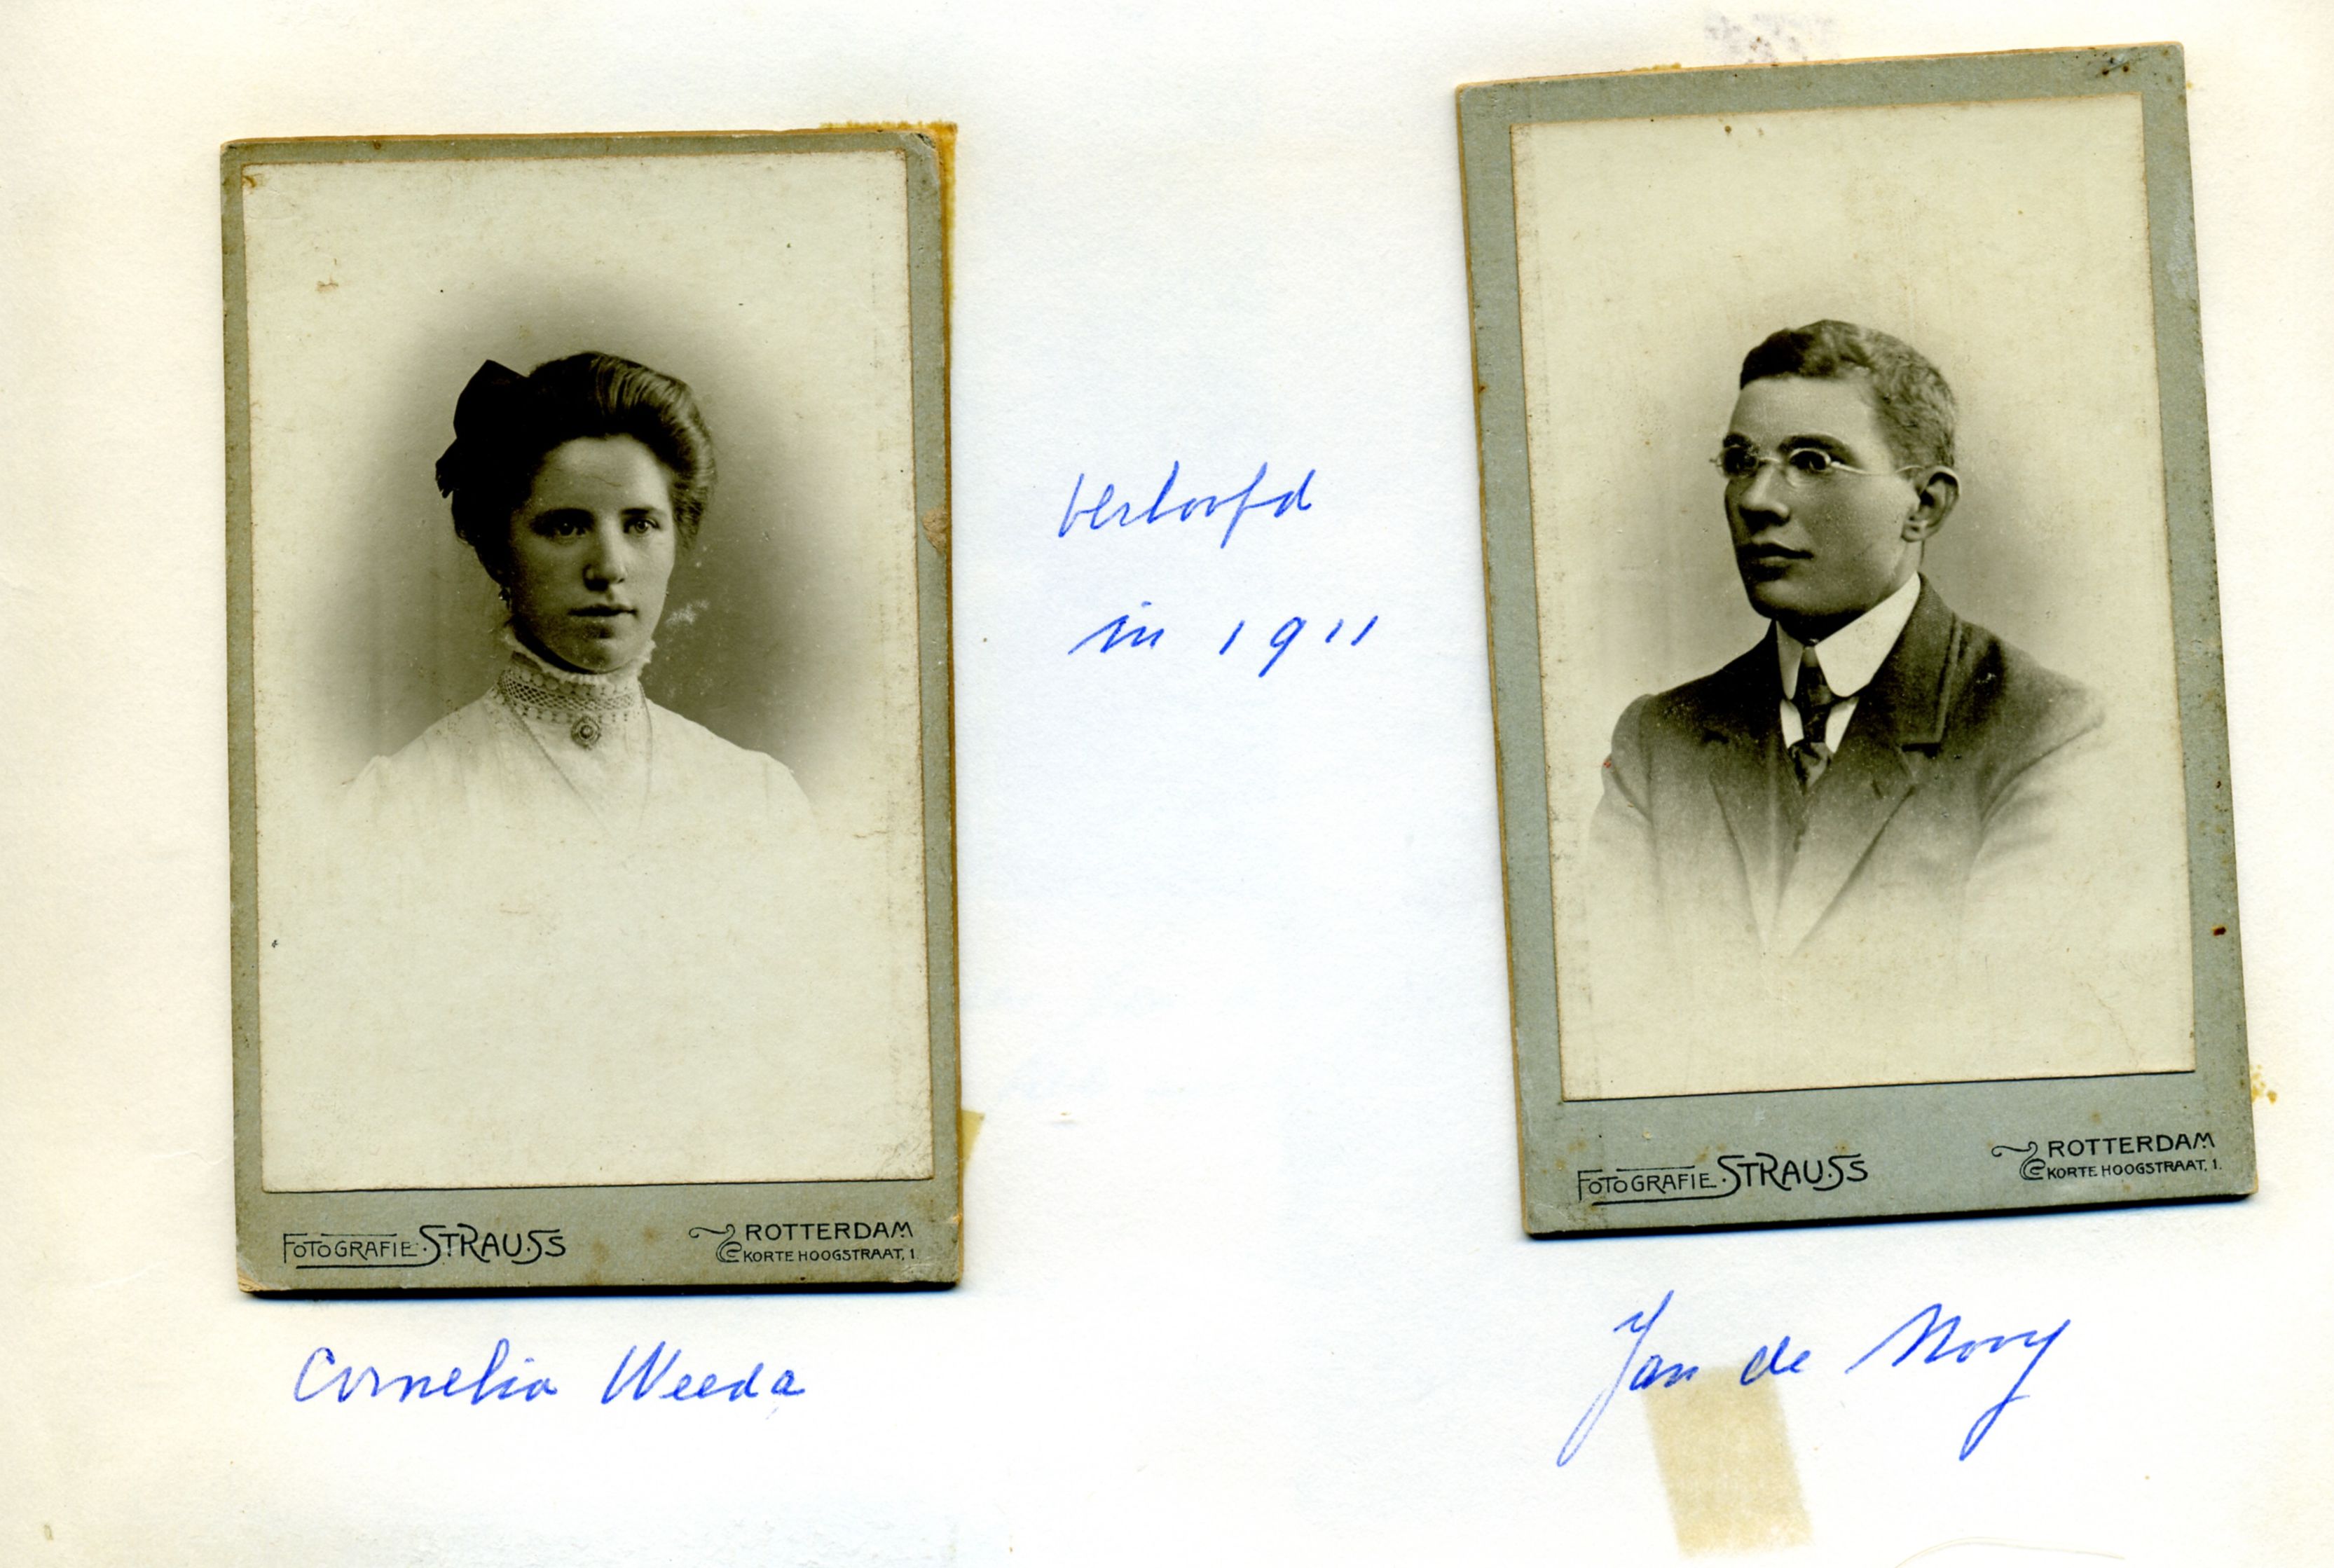 verloofd
in 1911
FOTOGRAFIE STRAUSS
ROTTERDAM
KORTE HOOGSTRAAT, 1.
Cornelia Weeda
FOTOGRAFIE STRAUSS
ROTTERDAM
KORTE HOOGSTRAAT, 1.
Jan de Nooy